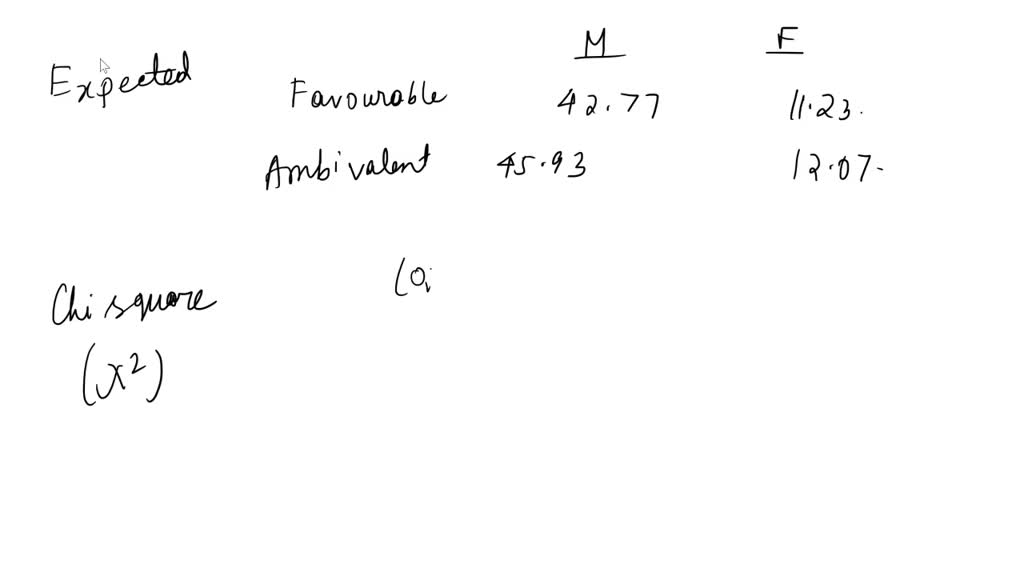 M F
Expected
Favourable 42.77 11.23.
Ambivalent 45.93 12.07.
Chi square (Oi
(x²)